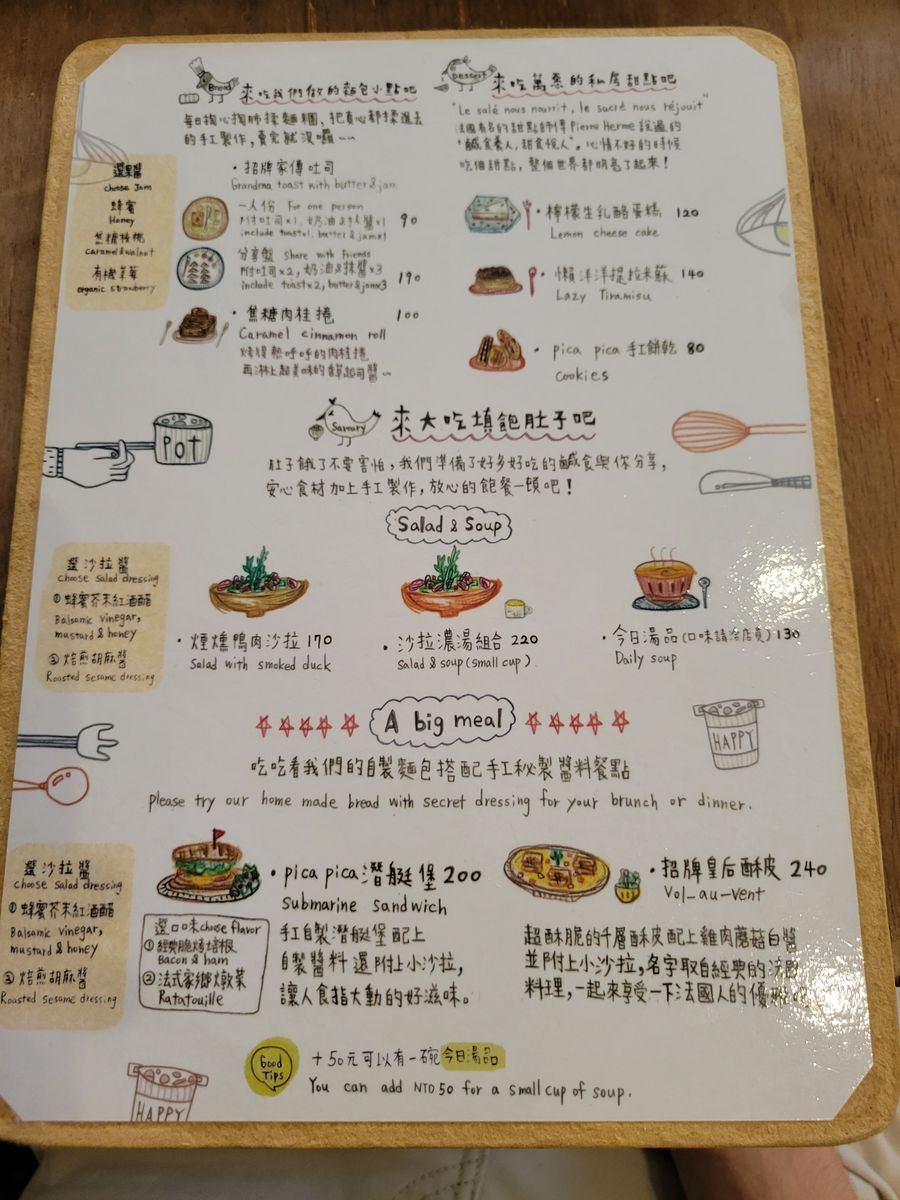 Bread
來吃我們做的麵包小點吧
每日掏心掏肺揉麵糰,把真心都揉進去
的手工製作,賣完就沒囉~~
選果醬
choose Jam
蜂蜜
Honey
焦糖核桃
caramel&walnut
有機草莓
organic strawberry
•招牌家傳吐司
Grandma toast with butter&jam
一人份 For one person
附吐司x1,奶油&抹醬x1 90
include toastx1, butter&jamx1
分享盤 Share with friends
附吐司x2,奶油&抹醬x3 190
include toastx2, butter&jamx3
•焦糖肉桂捲 100
Caramel cinnamon roll
烤得熱呼呼的肉桂捲
再淋上超美味的香草起司醬~
Dessert
來吃萬惡的私房甜點吧
"Le salé nous nourrit, le sucré nous réjouit"
法國有名的甜點師傅Pierre Herme說過的
"鹹食養人,甜食悅人"。心情不好的時候
吃個甜點,整個世界都明亮了起來!
•檸檬生乳酪蛋糕 120
Lemon cheese cake
•懶洋洋提拉米蘇 140
Lazy Tiramisu
•pica pica手工餅乾 80
cookies
POT
Savory
來大吃填飽肚子吧
肚子餓了不要害怕,我們準備了好多好吃的鹹食與你分享,
安心食材加上手工製作,放心的飽餐一頓吧!
Salad & Soup
選沙拉醬
choose salad dressing
①蜂蜜芥末紅酒醋
Balsamic vinegar,
mustard & honey
②焙煎胡麻醬
Roasted sesame dressing
•煙燻鴨肉沙拉 170
Salad with smoked duck
•沙拉濃湯組合 220
Salad & soup (small cup)
•今日湯品(口味請洽店員) 130
Daily soup
A big meal
HAPPY
吃吃看我們的自製麵包搭配手工秘製醬料餐點
please try our home made bread with secret dressing for your brunch or dinner.
選沙拉醬
choose salad dressing
①蜂蜜芥末紅酒醋
Balsamic vinegar,
mustard & honey
②焙煎胡麻醬
Roasted sesame dressing
•pica pica潛艇堡 200
Submarine sandwich
選口味choose flavor
①經典脆烤培根
Bacon & ham
②法式家鄉燉菜
Ratatouille
手工自製潛艇堡配上
自製醬料還附上小沙拉,
讓人食指大動的好滋味。
•招牌皇后酥皮 240
Vol-au-vent
超酥脆的千層酥皮配上雞肉蘑菇白醬
並附上小沙拉,名字取自經典的法國
料理,一起來享受一下法國人的優雅
Good
Tips
+50元可以有一碗今日湯品
You can add NTD 50 for a small cup of soup.
HAPPY